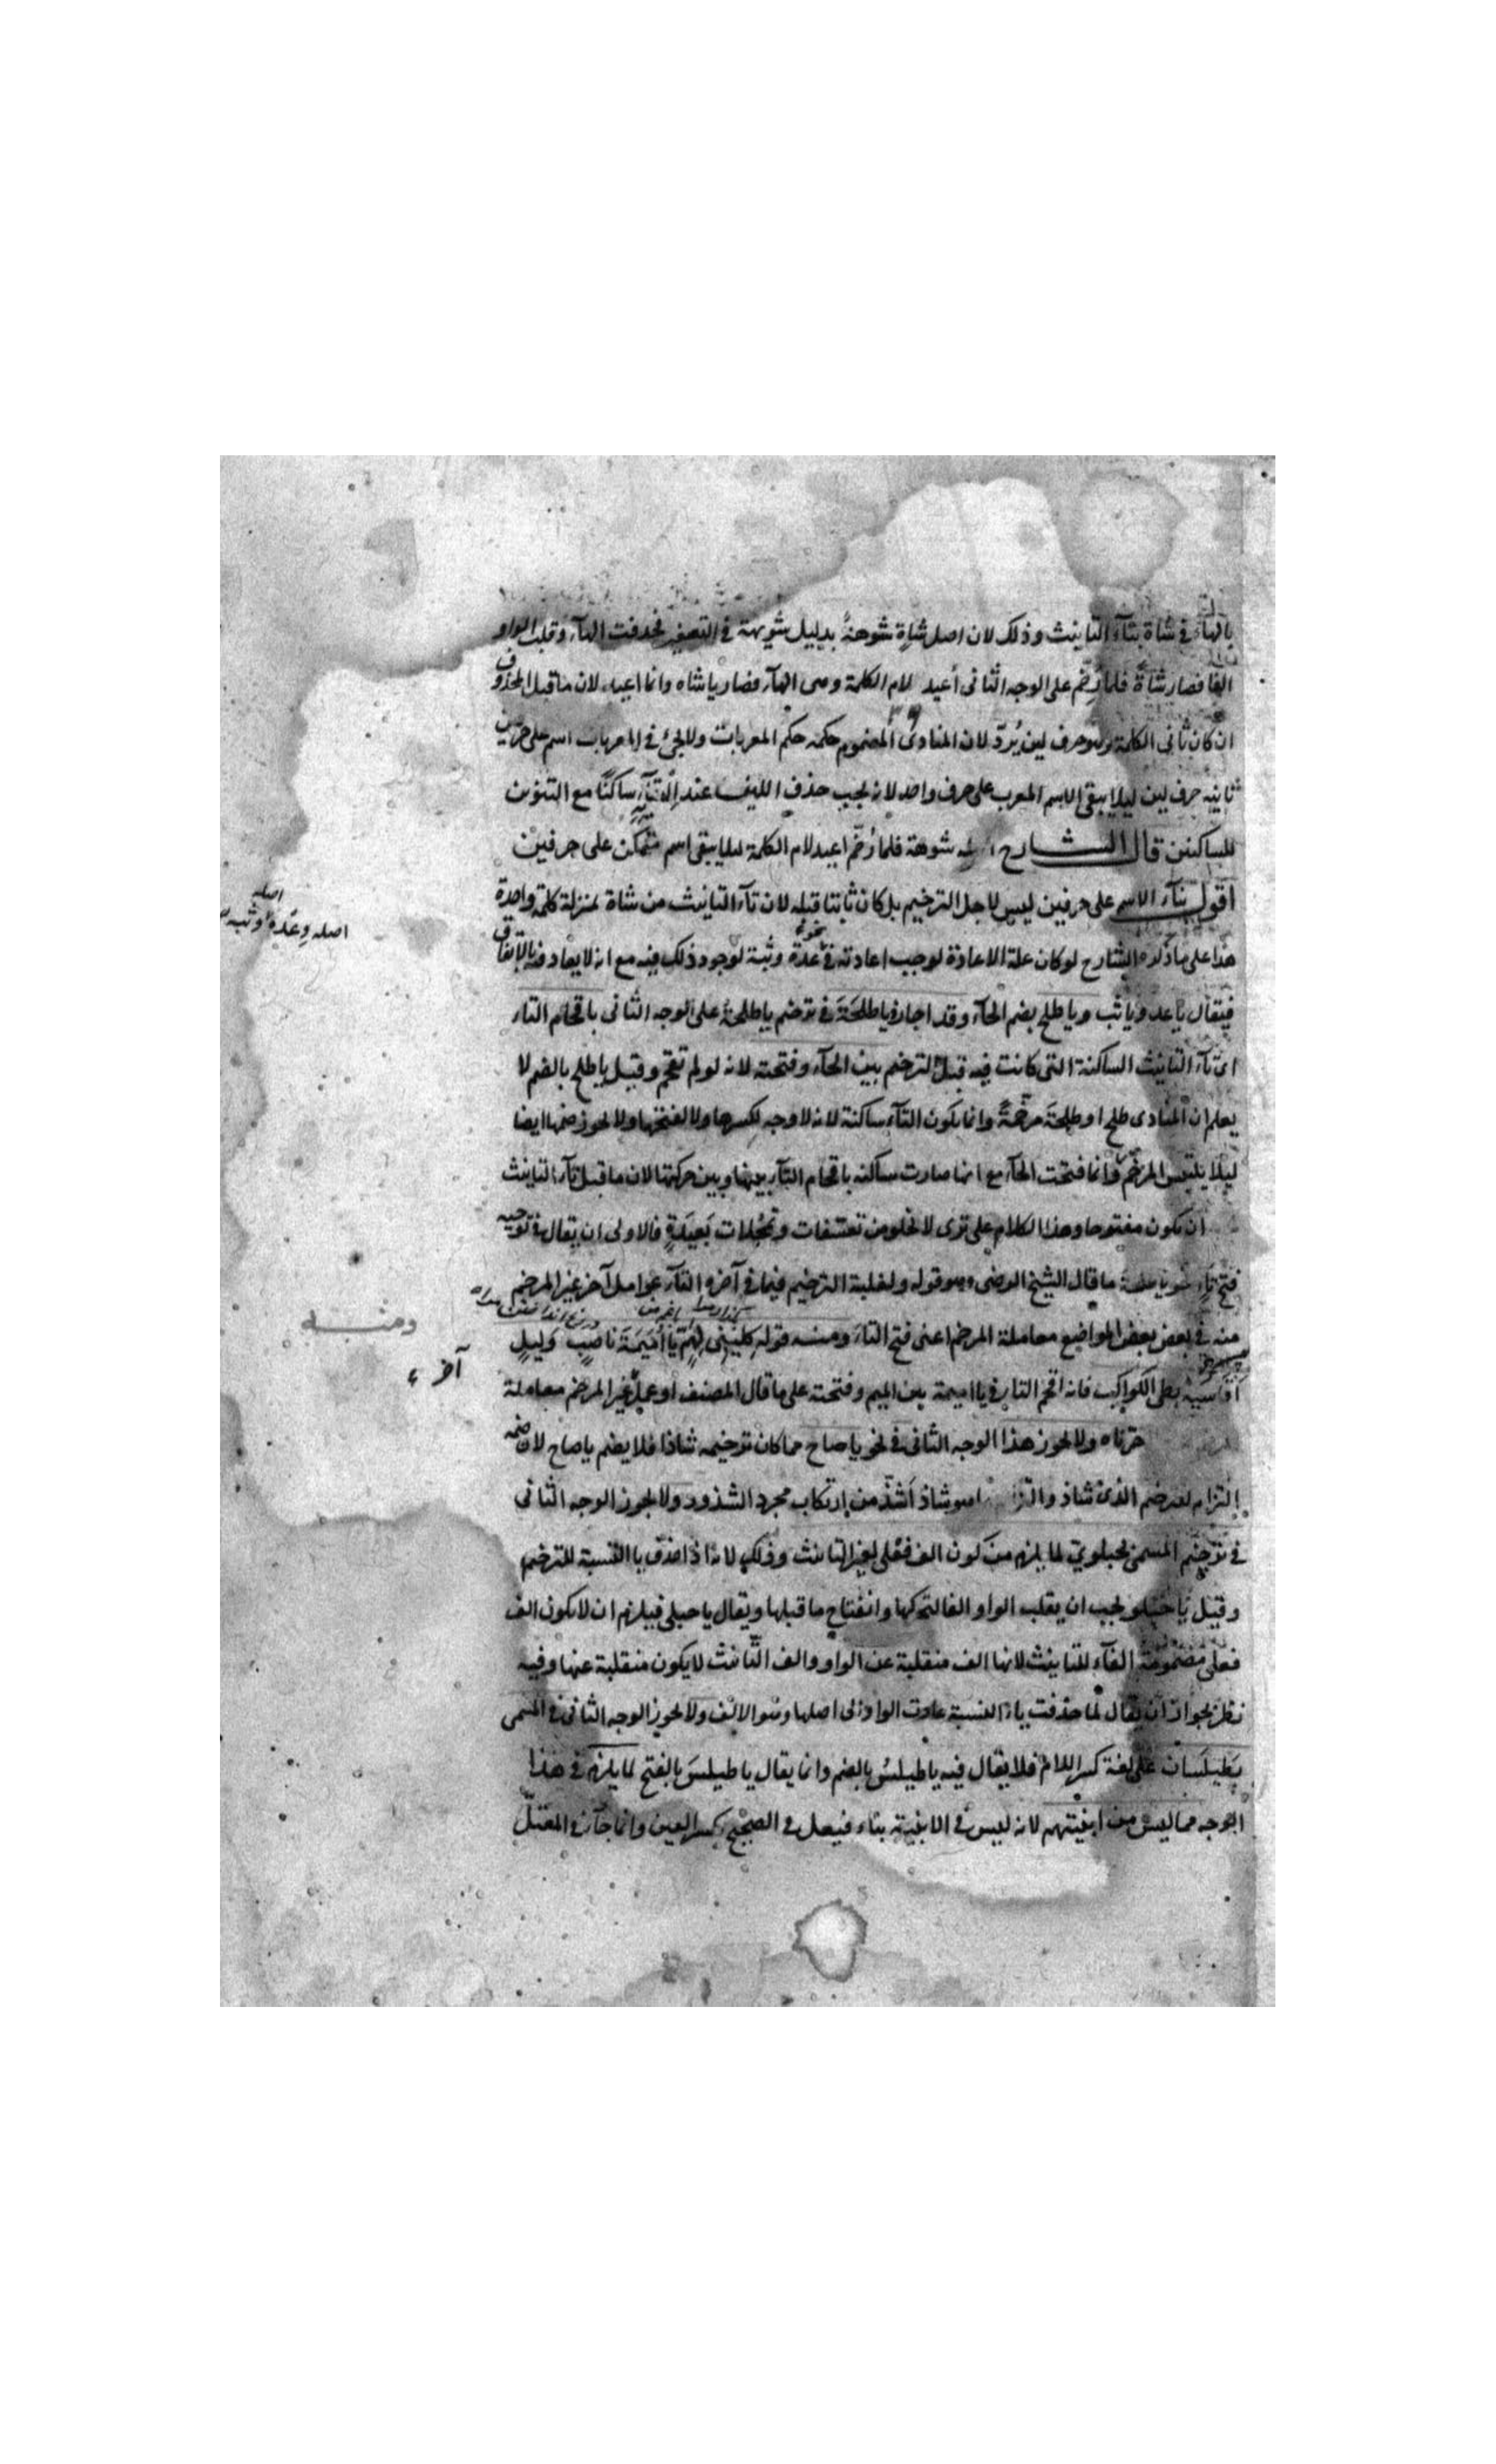 بالهاء في شاة بتاء التانيث وذلك لان اصل شاة شوهة بدليل شويهة في التصغير فحذفت الهاء وقلبت الواو
الفا فصار شاة فلما رخم على الوجه الثاني أعيد لام الكلمة وهى الهاء فصار يا شاه وانما اعيد لان ما قبل المحذوف
ان كان ثاني الكلمة وهو حرف لين يُردّ لان المنادى المضموم حكمه حكم المعربات ولا يجئ في المعربات اسم على حرفين
ثانيه حرف لين ليلا يبقى الاسم المعرب على حرف واحد لانه يجب حذف اللين عند ساكنًا مع التنوين
للساكنين قال الشارح شوهة فلما رُخّم اعيد لام الكلمة ليلا يبقى اسم متمكن على حرفين
اقول بناء الاسم على حرفين ليس لاجل الترخيم بل كان ثابتا قبله لان تاء التانيث من شاة بمنزلة كلمة واحدة
هذا على ما ذكره الشارح لو كان علة الاعادة لوجب اعادته في نحو عدة وثبة لوجود ذلك فيه مع انه لا يعاد فيه بالاتفاق
فيقال يا عد ويا ثب ويا طلح بضم الحاء وقد اجازوا يا طلحَةَ في ترخيم يا طلحةُ على الوجه الثاني باقحام التاء
اى تاء التانيث الساكنة التى كانت فيه قبل الترخيم بين الحاء وفتحته لانه لو لم تقحم وقيل يا طلح بالضم لا
يعلم ان المنادى طلح او طلحة مرخمةً وانما يكون التاء ساكنة لانه لا وجه لكسرها ولا لفتحها ولا يجوز ضمها ايضا
ليلا يلتبس المرخم وانما فتحت الحاء مع انها صارت ساكنه باقحام التاء بينها وبين حركتها لان ما قبل تاء التانيث
ان يكون مفتوحا وهذا الكلام على ترى لا يخلو من تعسفات وتمحلات بَعيدَةٍ فالاولى ان يقال في توجيه
فتح تاء نحو يا طلحة ما قال الشيخ الرضى وهو قوله ولغلبة الترخيم فيما في آخره التاء عوامل آخر غير المرخم
منه في بعض بعض المواضع معاملة المرخم اعنى فتح التاء ومنه قوله كلينى لهمّ يا أُمَيمَةَ ناصبٍ وَليلٍ
أقاسيه بطى الكواكب فانه اقحم التاء في يا اميمة بين الميم وفتحته على ما قال المصنف او عمل غير المرخم معاملة
ولا يجوز هذا الوجه الثاني في نحو يا صاح مما كان ترخيمه شاذا فلا يضم يا صاح لان ضمه
التزام لعد ضم الذى شاذ وهو شاذ أشذّ من ارتكاب مجرد الشذوذ ولا يجوز الوجه الثاني
في ترخيم المسمى بحبلويّ لما يلزم من كون الف فُعلى لغير التانيث وذلك لانه اذا حذف ياا النسبة للترخيم
وقيل يا حبلو يجب ان يقلب الواو الفا لتحركها وانفتاح ما قبلها ويقال يا حبلى فيلزم ان لا يكون الف
فعلى مضمومة الفاء للتانيث لانها الف منقلبة عن الواو والف التانيث لا يكون منقلبة عنها وفيه
نظر بجواز ان يقال لما حذفت ياا النسبة عادت الواو الى اصلها وهو الالف ولا يجوز الوجه الثاني في المسمى
بَطيلَسان على لغة كسر اللام فلا يقال فيه يا طيلسُ بالضم وانما يقال يا طيلسَ بالفتح لما يلزم في هذا
الوجه مما ليس من ابنيتهم لانه ليس في الابنية بناء فيعل في الصحيح بكسر العين وانما جاء في المعتل
اصله
اصله وعدة او ثبه
ومنه
آخر